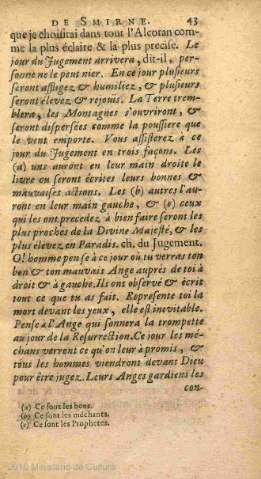 DE SMIRNE. 43
que je choisirai dans tout l'Alcoran com-
me la plus éclaire & la plus precise. Le
jour du Jugement arrivera, dit-il, per-
sonne ne le peut nier. En ce jour plusieurs
seront affligez & humiliez, & plusieurs
seront élevez & rejouis. La Terre trem-
blera, les Montagnes s'ouvriront, &
seront dispersées comme la poussiere que
le vent emporte. Vous assisterez à ce
jour du Jugement en trois façons. Les
(a) uns auront en leur main droite le
livre ou seront écrites leurs bonnes &
mauvaises actions. Les (b) autres l'au-
ront en leur main gauche, & (c) ceux
qui les ont precedez à bien faire seront les
plus proches de la Divine Majesté, & les
plus élevez en Paradis. ch. du Jugement.
O! homme pense à ce jour où tu verras ton
bon & ton mauvais Ange auprés de toi à
droit & à gauche. Ils ont observé & écrit
tout ce que tu as fait. Represente toi la
mort devant les yeux, elle est inevitable.
Pense à l'Ange qui sonnera la trompette
au jour de la Resurrection. Ce jour les mé-
chans verront ce qu'on leur à promis, &
tous les hommes viendront devant Dieu
pour être jugez. Leurs Anges gardiens les
con-
(a) Ce sont les bons.
(b) Ce sont les méchants.
(c) Ce sont les Prophetes.
2010 Ministerio de Cultura